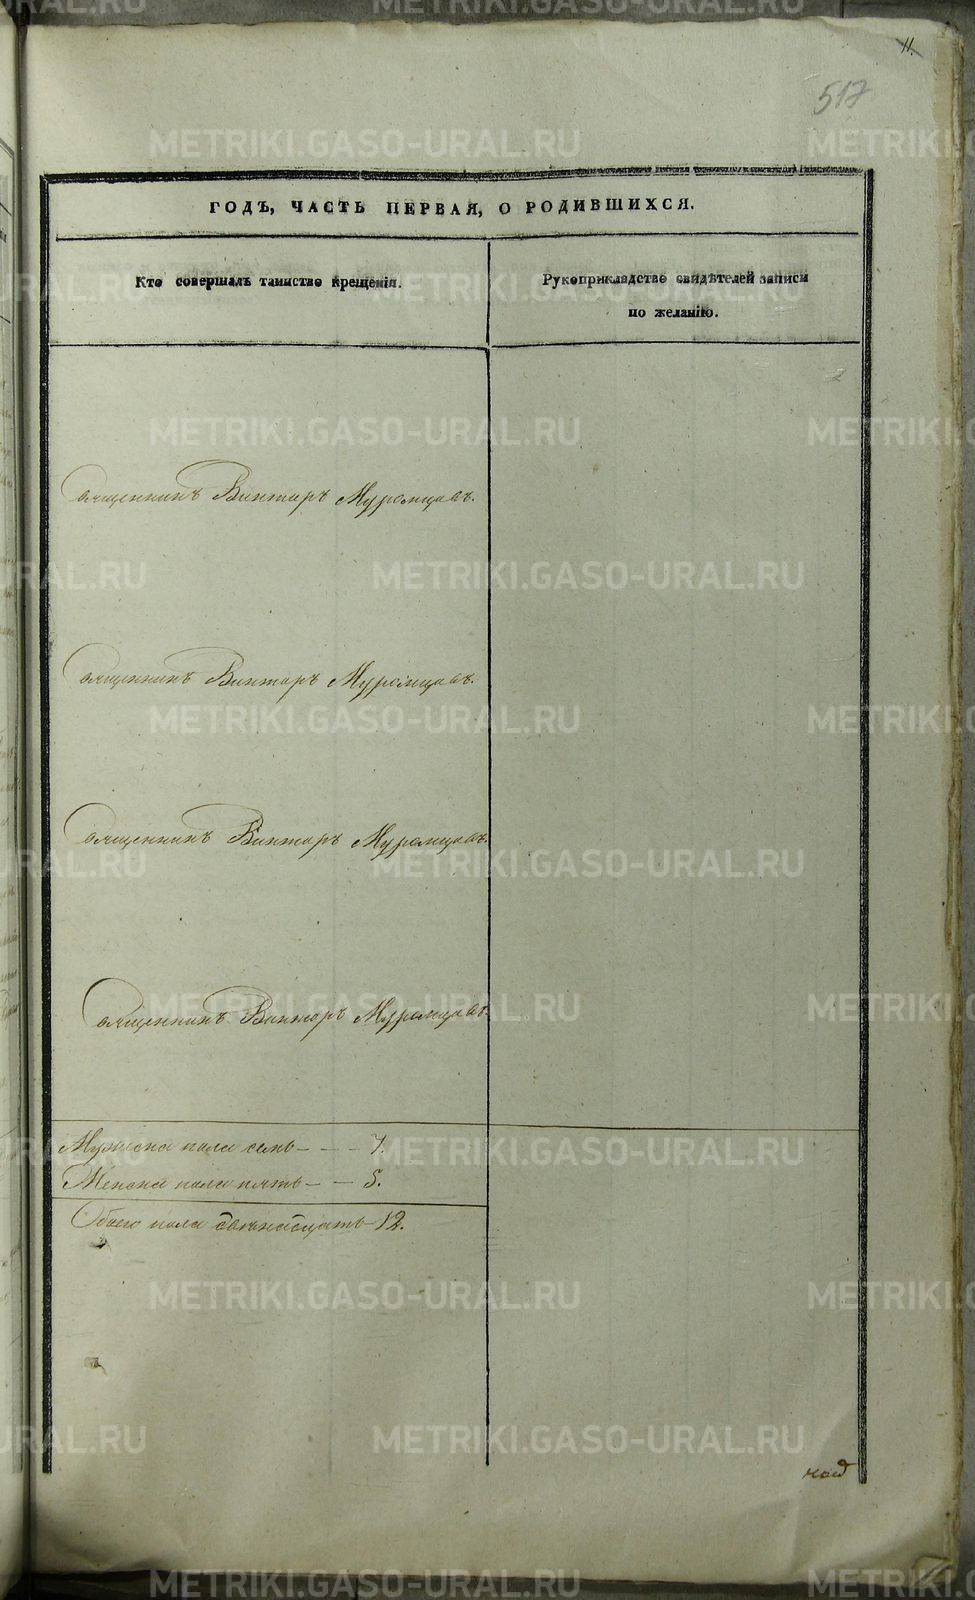 11.
517
ГОДЪ, ЧАСТЬ ПЕРВАЯ, О РОДИВШИХСЯ.
Кто совершалъ таинство крещенія.
Рукоприкладство свидѣтелей записи
по желанію.
Священникъ Викторъ Муромцовъ.
Священникъ Викторъ Муромцовъ.
Священникъ Викторъ Муромцовъ.
Священникъ Викторъ Муромцовъ.
Мужеска пола семь - - - 7.
Женска пола пять - - 5.
Обоего пола двенадцать 12.
METRIKI.GASO-URAL.RU